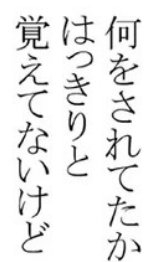 何をされてたか
はっきりと
覚えてないけど